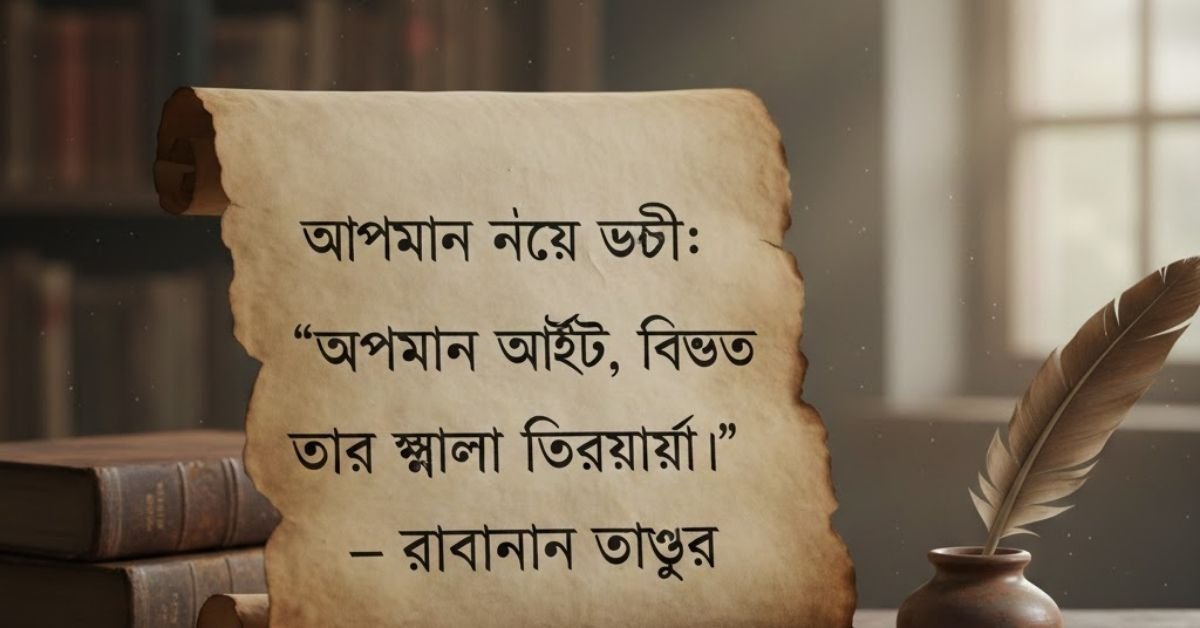 আপমান নয়ে ভচী:
“অপমান আর্ইট, বিভত
তার স্ম্লালা তিরয়ার্য়া।”
– রাবানান তাণ্ডুর